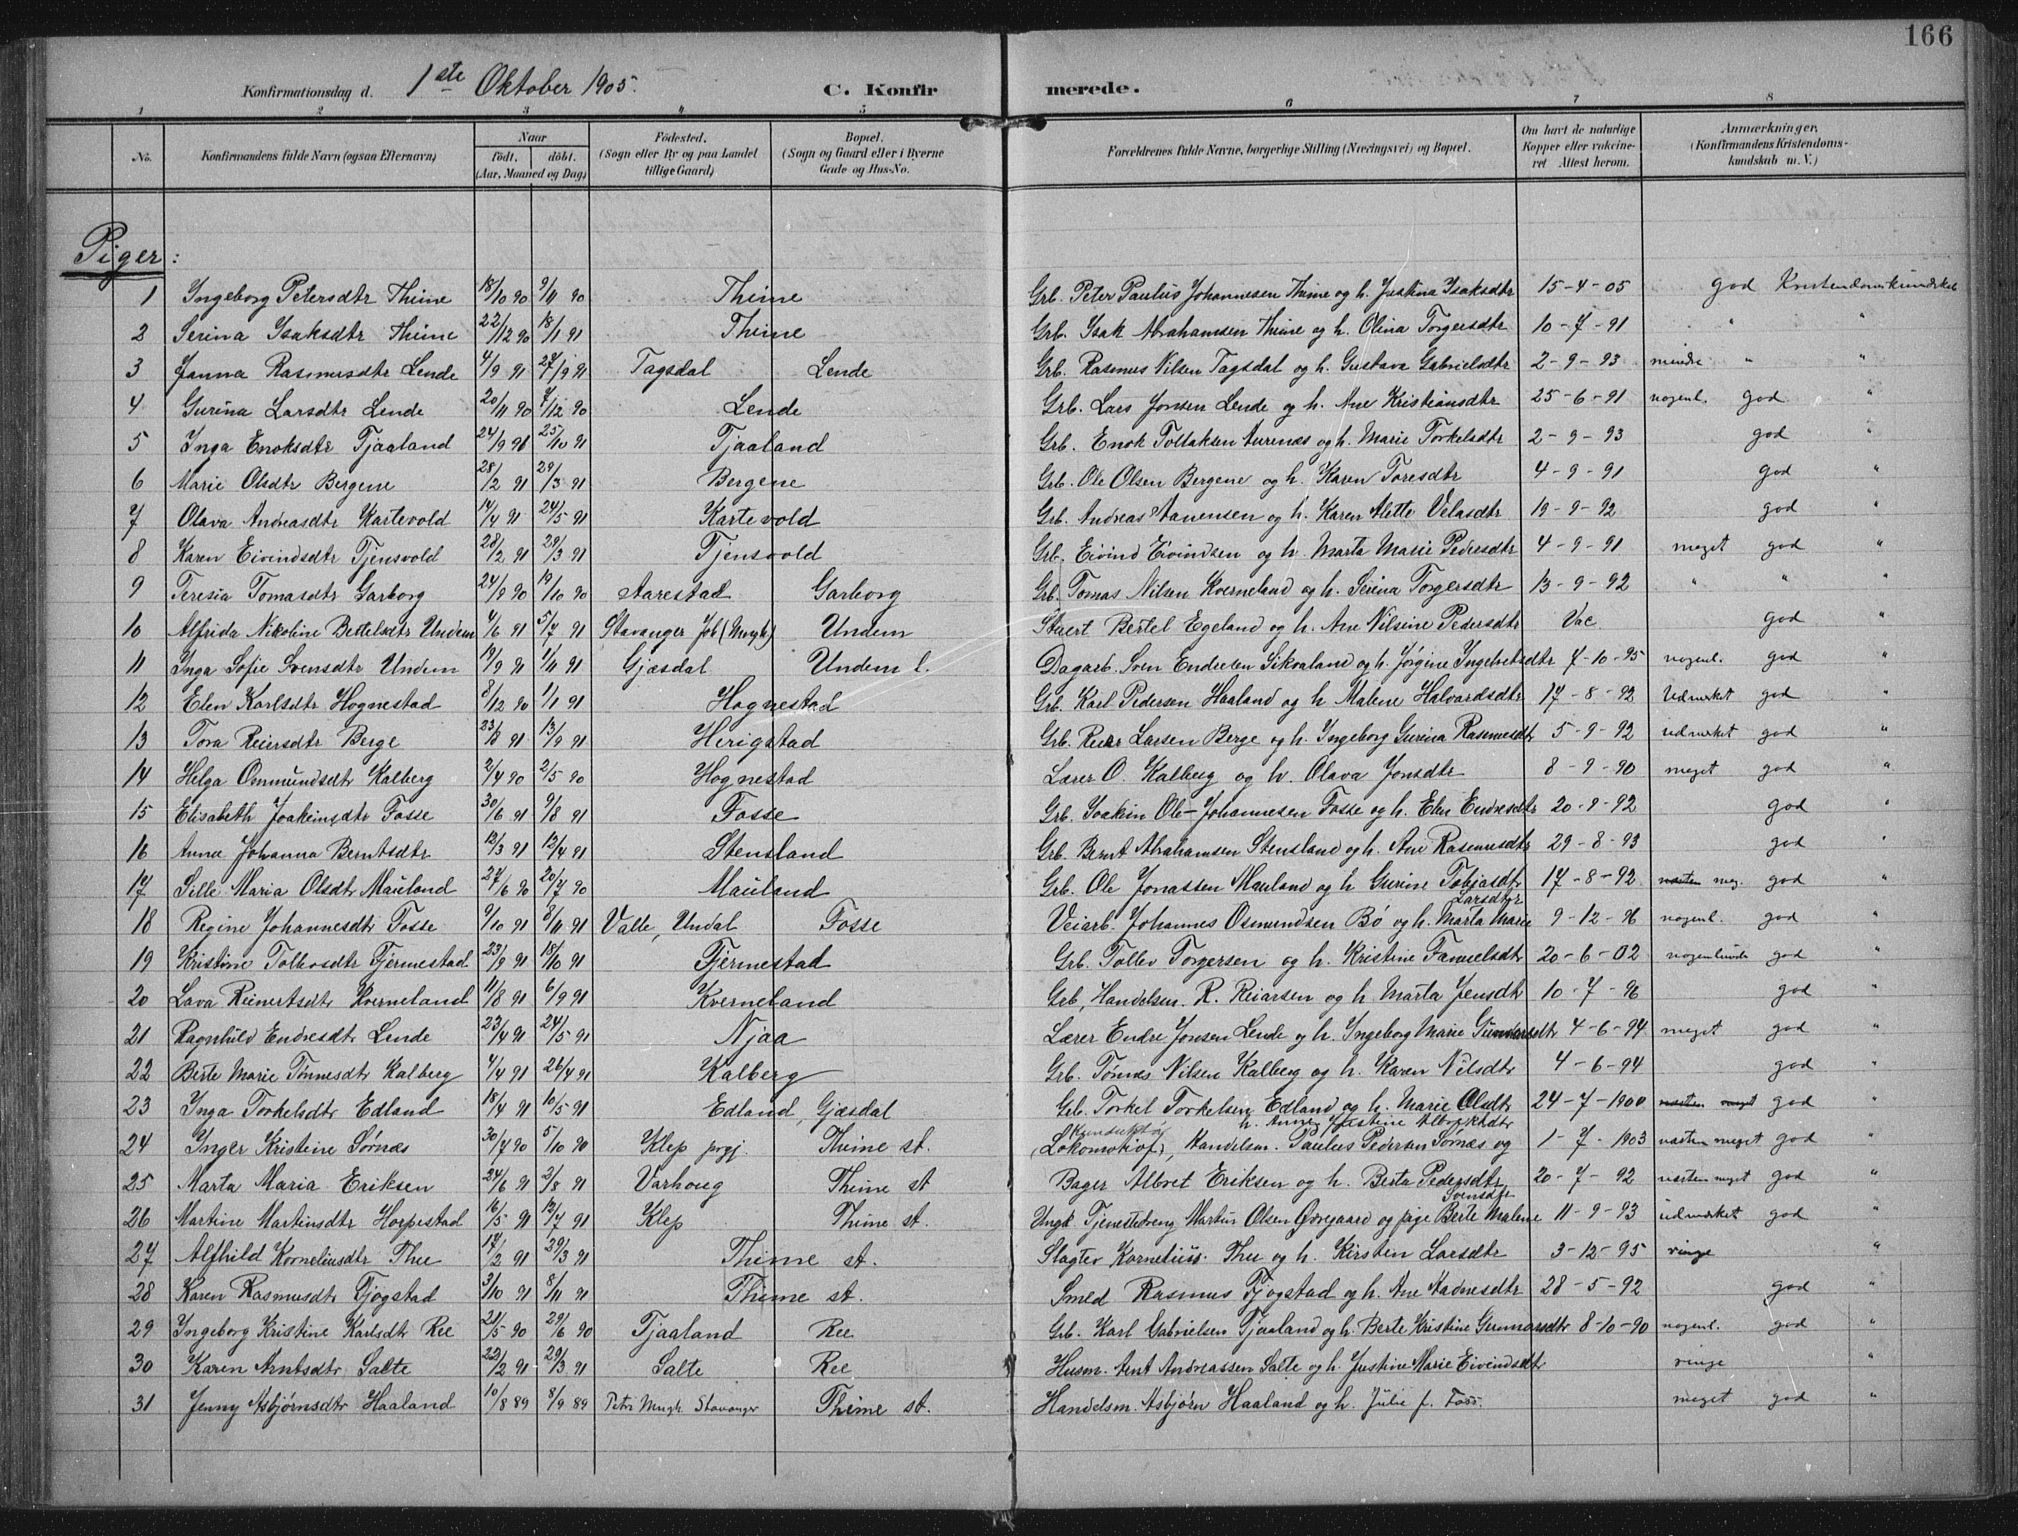 166
Konfirmationsdag d. 1ste Oktober 1905. C. Konfirmerede.
1 2 3 4 5 6 7 8
No. Konfirmandens fulde Navn (ogsaa Efternavn) Naar født, døbt. (Aar, Maaned og Dag) Fødested. (Sogn eller By og paa Landet tillige Gaard) Bopæl. (Sogn og Gaard eller i Byerne Gade og Hus-No. Forældrenes fulde Navne, borgerlige Stilling (Næringsvei) og Bopæl. Om havt de naturlige Kopper eller vakcineret Attest herom. Anmærkninger. (Konfirmandens Kristendomskundskab m. V.)
Piger:
1 Ingeborg Petersdtr Thime 18/10 90 9/11 90 Thime Grb. Peter Paulus Johannesen Thime og h. Justina Isaksdtr 15-4-05 god Kristendomskundskab
2 Serina Isaksdtr Thime 22/12 90 18/1 91 Thime Grb. Isak Abrahamsen Thime og h. Olina Torgersdtr 10-7-91 " "
3 Janna Rasmusdtr Lende 4/9 91 27/9 91 Tagsdal Lende Grb. Rasmus Nilsen Tagsdal og h. Gustava Gabrielsdtr 2-9-93 mindre " "
4 Gurina Larsdtr Lende 20/11 90 7/12 90 Lende Grb. Lars Jonsen Lende og h. Ane Kristiansdtr 25-6-91 nogenl. god "
5 Inga Enoksdtr Tjaaland 24/9 91 25/10 91 Tjaaland Grb. Enok Tollaksen Aurenæs og h. Marie Torkelsdtr 2-9-93 god "
6 Marie Olsdtr Bergene 28/2 91 29/3 91 Bergene Grb. Ole Olsen Bergene og h. Karen Toresdtr 4-9-91 god "
7 Olava Andreasdtr Kartevold 14/4 91 24/5 91 Kartevold Grb. Andreas Aanensen og h. Karen Alette Velasdtr 19-9-92 god "
8 Karen Eivindsdtr Tjensvold 28/2 91 29/3 91 Tjensvold Grb. Eivind Eivindsen og h. Marta Marie Pedersdtr 4-9-91 meget god "
9 Teresia Tomasdtr Garborg 24/9 90 19/10 90 Aarestad Garborg Grb. Tomas Nilsen Kverneland og h. Serina Torgersdtr 13-9-92 " " "
10 Alfrida Nikoline Bertelsdtr Undem 4/6 91 5/7 91 Stavanger Undem Bertel Egeland og h. Ane Nilsine Pedersdtr Vac god "
11 Inga Sofie Svensdtr Undem 19/9 91 1/11 91 Gjæsdal Undem l. Dagarb. Sven Endresen Sikvaland og h. Jørgine Ingebretsdtr 7-10-95 nogenl. god "
12 Elen Karlsdtr Hognestad 8/12 90 1/1 91 Hognestad Grb. Karl Pedersen Haaland og h. Malene Halvardsdtr 17-8-92 Udmærket god "
13 Tora Reiersdtr Berge 23/8 91 13/9 91 Herigstad Grb. Reier Larsen Berge og h. Ingeborg Gurina Rasmusdtr 5-9-92 udmærket god "
14 Helga Ommundsdtr Kalberg 2/4 90 2/5 90 Hognestad Lærer O. Kalberg og h. Olava Jonsdtr 8-9-90 meget god "
15 Elisabeth Joakimsdtr Fosse 30/6 91 9/8 91 Fosse Grb. Joakim Ole-Johannesen Fosse og h. Elen Endresdtr 20-9-92 god "
16 Anna Johanna Berntsdtr 12/3 91 12/4 91 Stensland Grb. Bernt Abrahamsen Stensland og h. Ane Rasmusdtr 29-8-93 god "
17 Sille Maria Olsdtr Mauland 27/6 90 20/7 90 Mauland Grb. Ole Jonassen Mauland og h Gurine Tobiasdtr 17-8-92 næsten meg. god "
18 Regine Johannesdtr Fosse 9/10 91 8/11 91 Valle, Undal Fosse Veiarb. Johannes Osmundsen Bø og h. Marta Marie Larsdtr 9-12-96 nogenl. god "
19 Kristine Tollevsdtr Fjermestad 23/9 91 18/10 91 Fjermestad Grb. Tollev Torgersen og h. Kristine Fanuelsdtr 20-6-02 nogenlunde god "
20 Lava Reinertsdtr Kverneland 11/8 91 6/9 91 Kverneland Grb, Handelsm. R. Reiarsen og h. Marta Jensdtr 10-7-96 god "
21 Ragnhild Endresdtr Lende 23/4 91 24/5 91 Njaa Lærer Endre Jonsen Lende og h. Ingeborg Marie Gunnarsdtr 4-6-94 meget god "
22 Berte Marie Tønnesdtr Kalberg 4/4 91 26/4 91 Kalberg Grb. Tønnes Nilsen Kalberg og h. Karen Nilsdtr 4-6-94 god "
23 Inga Torkelsdtr Edland 18/4 91 10/5 91 Edland, Gjæsdal Grb. Torkel Torkelsen Edland og h. Marie Olsdtr 24-7-1900 næsten meget god "
24 Inger Kristine Sørnæs 30/7 90 5/10 90 Klep prgj. Thime st. (Lokomotivf), Handelsm. Paulus Pedersen Sørnæs og h. Anne Justine Albrektsdtr 1-7-1903 næsten meget god "
25 Marta Maria Eriksen 24/6 91 2/8 91 Varhoug Thime st Bager Albret Eriksen og h. Berta Pedersdtr 20-7-92 næsten meget god "
26 Martine Martinsdtr Horpestad 16/5 91 12/7 91 Klep Thime st. Ungk. Tjenestedreng Martin Olsen Øvregaard og pige Berte Malene Svensdtr 11-9-93 udmærket god "
27 Alfhild Korneliusdtr Thu 17/2 91 29/3 91 Thime st. Slagter Kornelius Thu og h. Kirsten Larsdtr 3-12-95 ringe "
28 Karen Rasmusdtr Fjogstad 3/10 91 8/11 91 Thime st. Smed Rasmus Fjogstad og h. Ane Aadnesdtr 28-5-92 god "
29 Ingeborg Kristine Karlsdtr Ree 21/5 90 29/6 90 Tjaaland Ree Grb. Karl Gabrielsen Tjaaland og h. Berte Kristine Gunnarsdtr 8-10-90 nogenl. god "
30 Karen Arntsdtr Salte 22/2 91 29/3 91 Salte Ree Husm. Arnt Andreassen Salte og h. Justine Marie Eivindsdtr ringe "
31 Jenny Asbjørnsdtr Haaland 10/8 89 8/9 89 Petri Mngh. Stavanger Thime st. Handelsm. Asbjørn Haaland og h. Julie f. Foss. meget god "